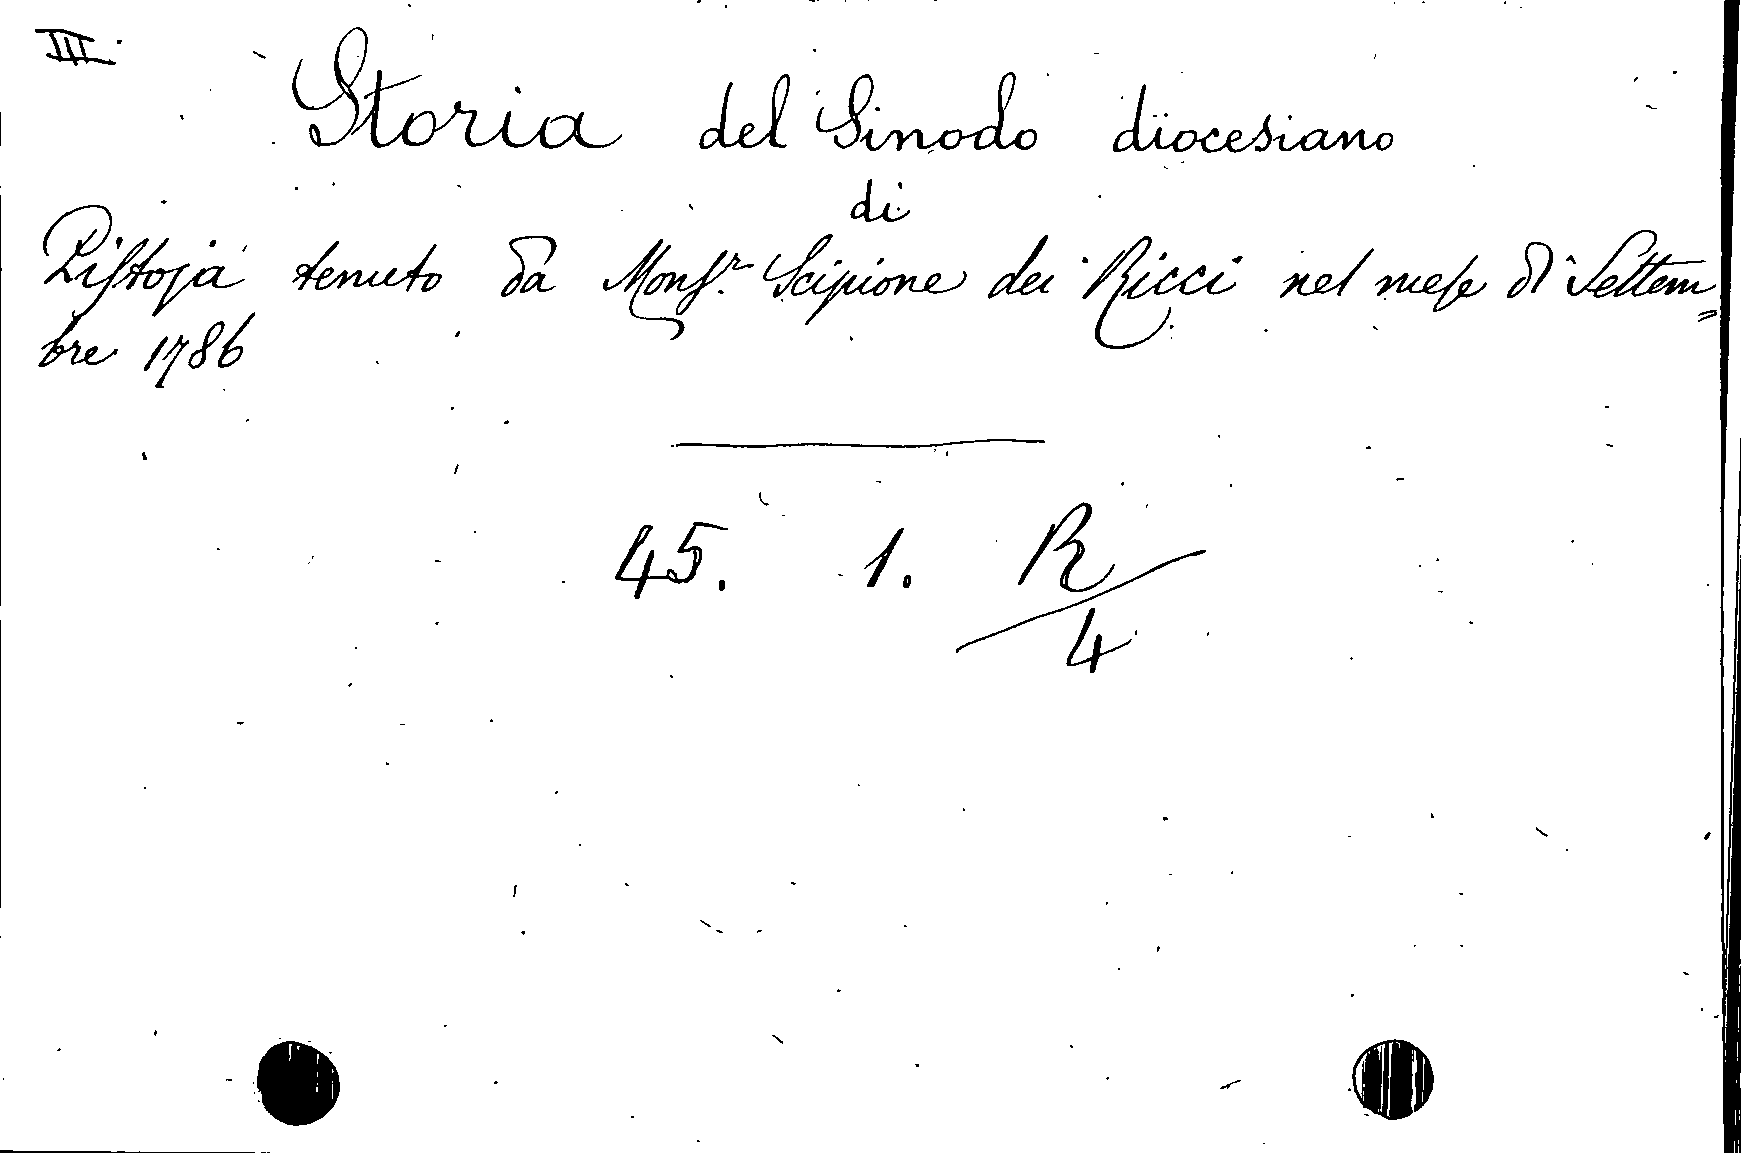 III.
Storia del Sinodo diocesiano
di
Pistoja tenuto da Monsr. Scipione dei Ricci nel mese di Settem=
bre 1786
45. 1. R/4